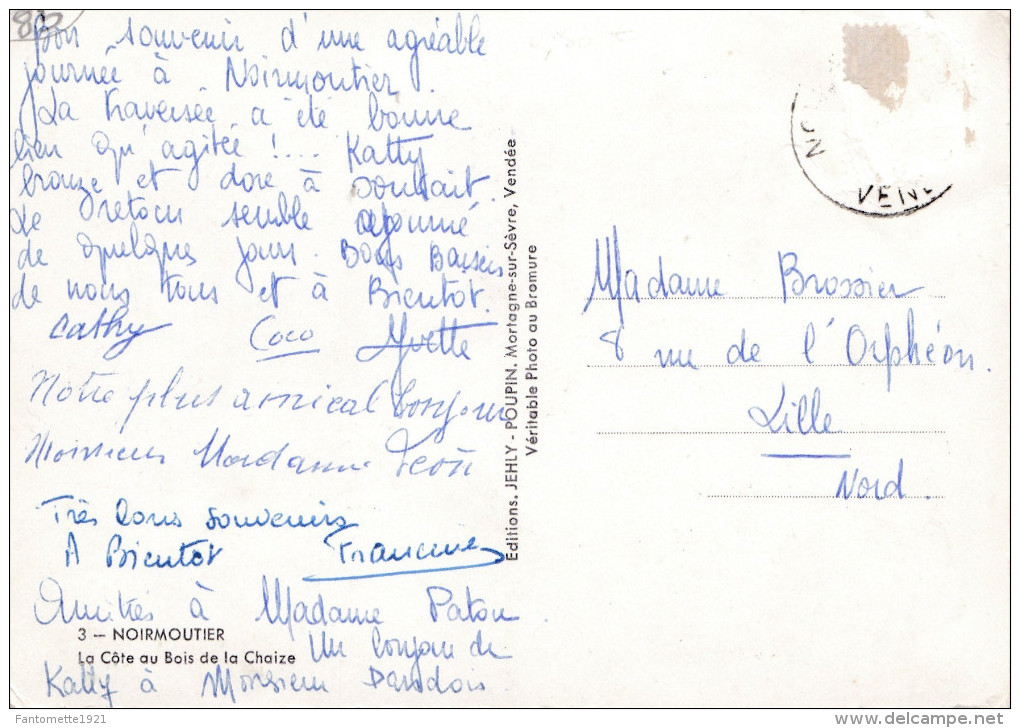 Bon souvenir d'une agréable
journée à Noirmoutier.
La traversée a été bonne
bien qu'agitée !.... Katty
bronze et dore à souhait.
Le retour semble ajourné
de quelques jours. Bons Baisers
de nous tous et à Bientot.
Cathy Coco Yvette
Notre plus amical bonjour
Monsieur Madame Léon
Très bons souvenirs
A Bientot Francine
Amitiés à Madame Patou
3 — NOIRMOUTIER
Un bonjour de
La Côte au Bois de la Chaize
Katty à Monsieur
Editions. JEHLY - POUPIN. Mortagne-sur-Sèvre, Vendée
Véritable Photo au Bromure
NO
VEN
Madame Brossier
8 rue de l'Orphéon.
Lille
Nord.
Fantomette1921
delcampe.net